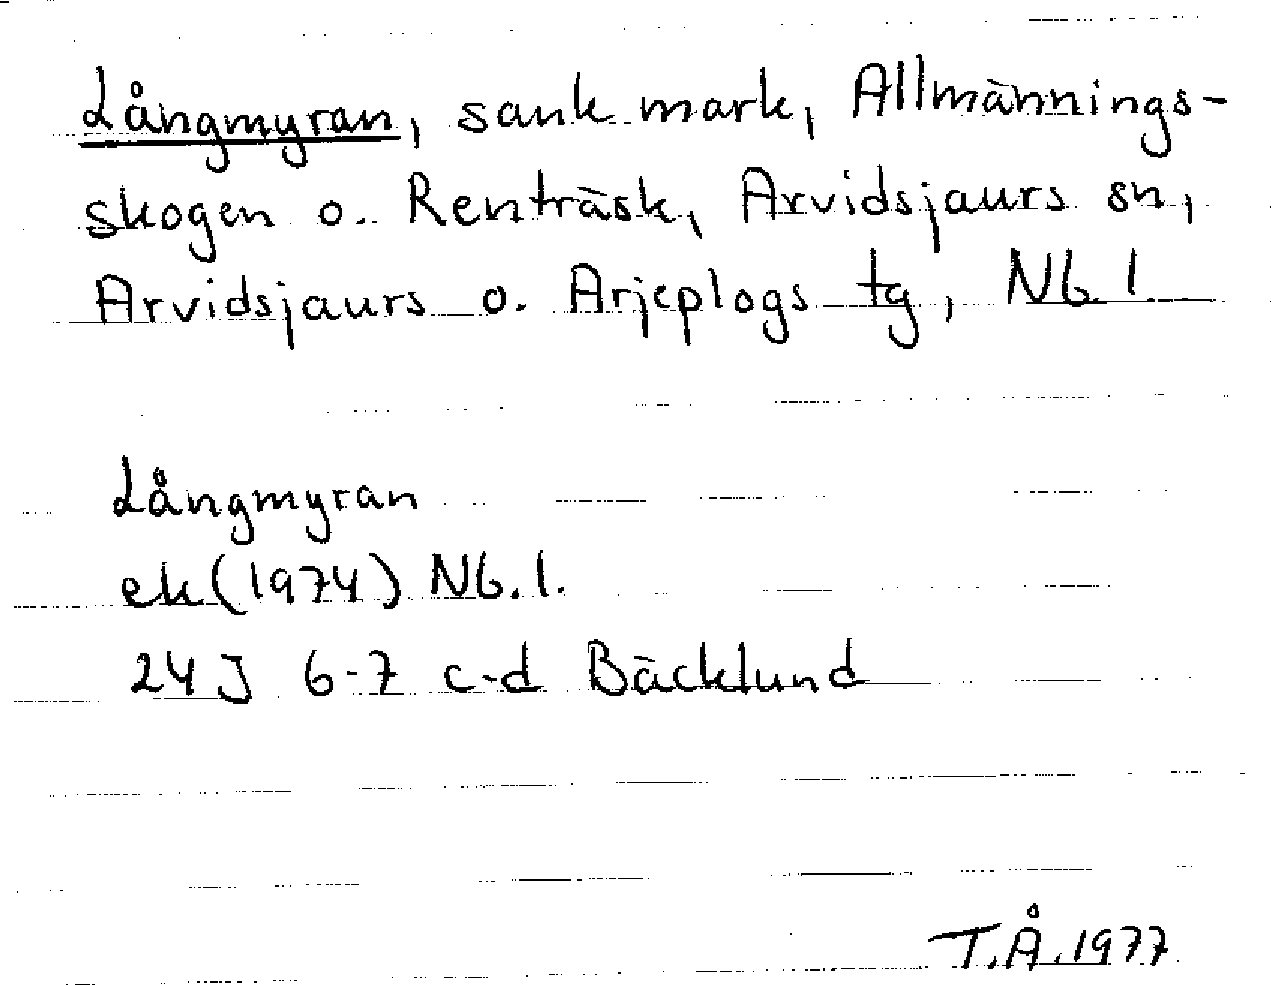 Långmyran, sank mark, Allmännings-
skogen o. Renträsk, Arvidsjaurs sn,
Arvidsjaurs o. Arjeplogs tg, Nb l
Långmyran
ek(1974) Nb. l.
24J 6-7 c-d Bäcklund
T.Å. 1977